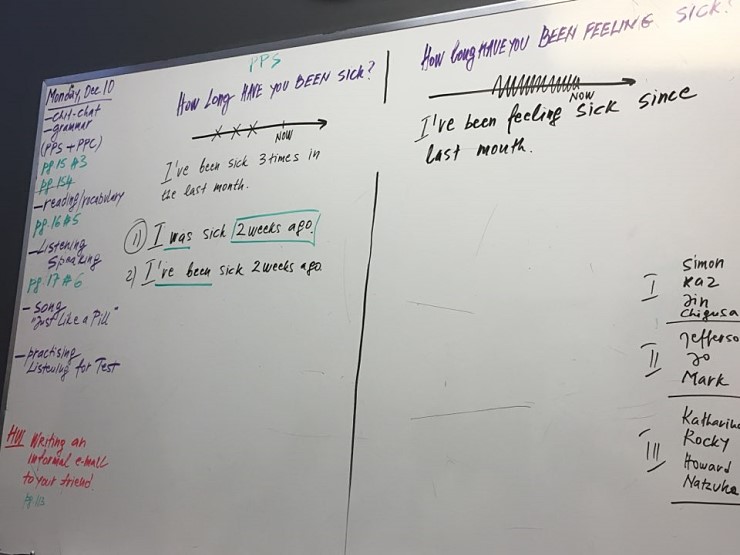 Monday, Dec 10
- chit-chat
- grammar
(PPS + PPC)
pg 15 #3
pg 154
- reading/vocabulary
pg. 16 #5
- Listening
Speaking
pg. 17 #6
- Song
"Just Like a Pill"
- practising
Listening for Test
HW Writing an
informal e-mail
to your friend.
pg 113
PPS
How Long HAVE YOU BEEN SICK?
NOW
I've been sick 3 times in
the last month.
1) I was sick 2 weeks ago.
2) I've been sick 2 weeks ago.
How Long HAVE YOU BEEN FEELING SICK?
NOW
I've been feeling sick since
last month.
I
Simon
Kaz
Jin
Chigusa
II
Jefferso
Jo
Mark
III
Katharina
Rocky
Howard
Natzuka